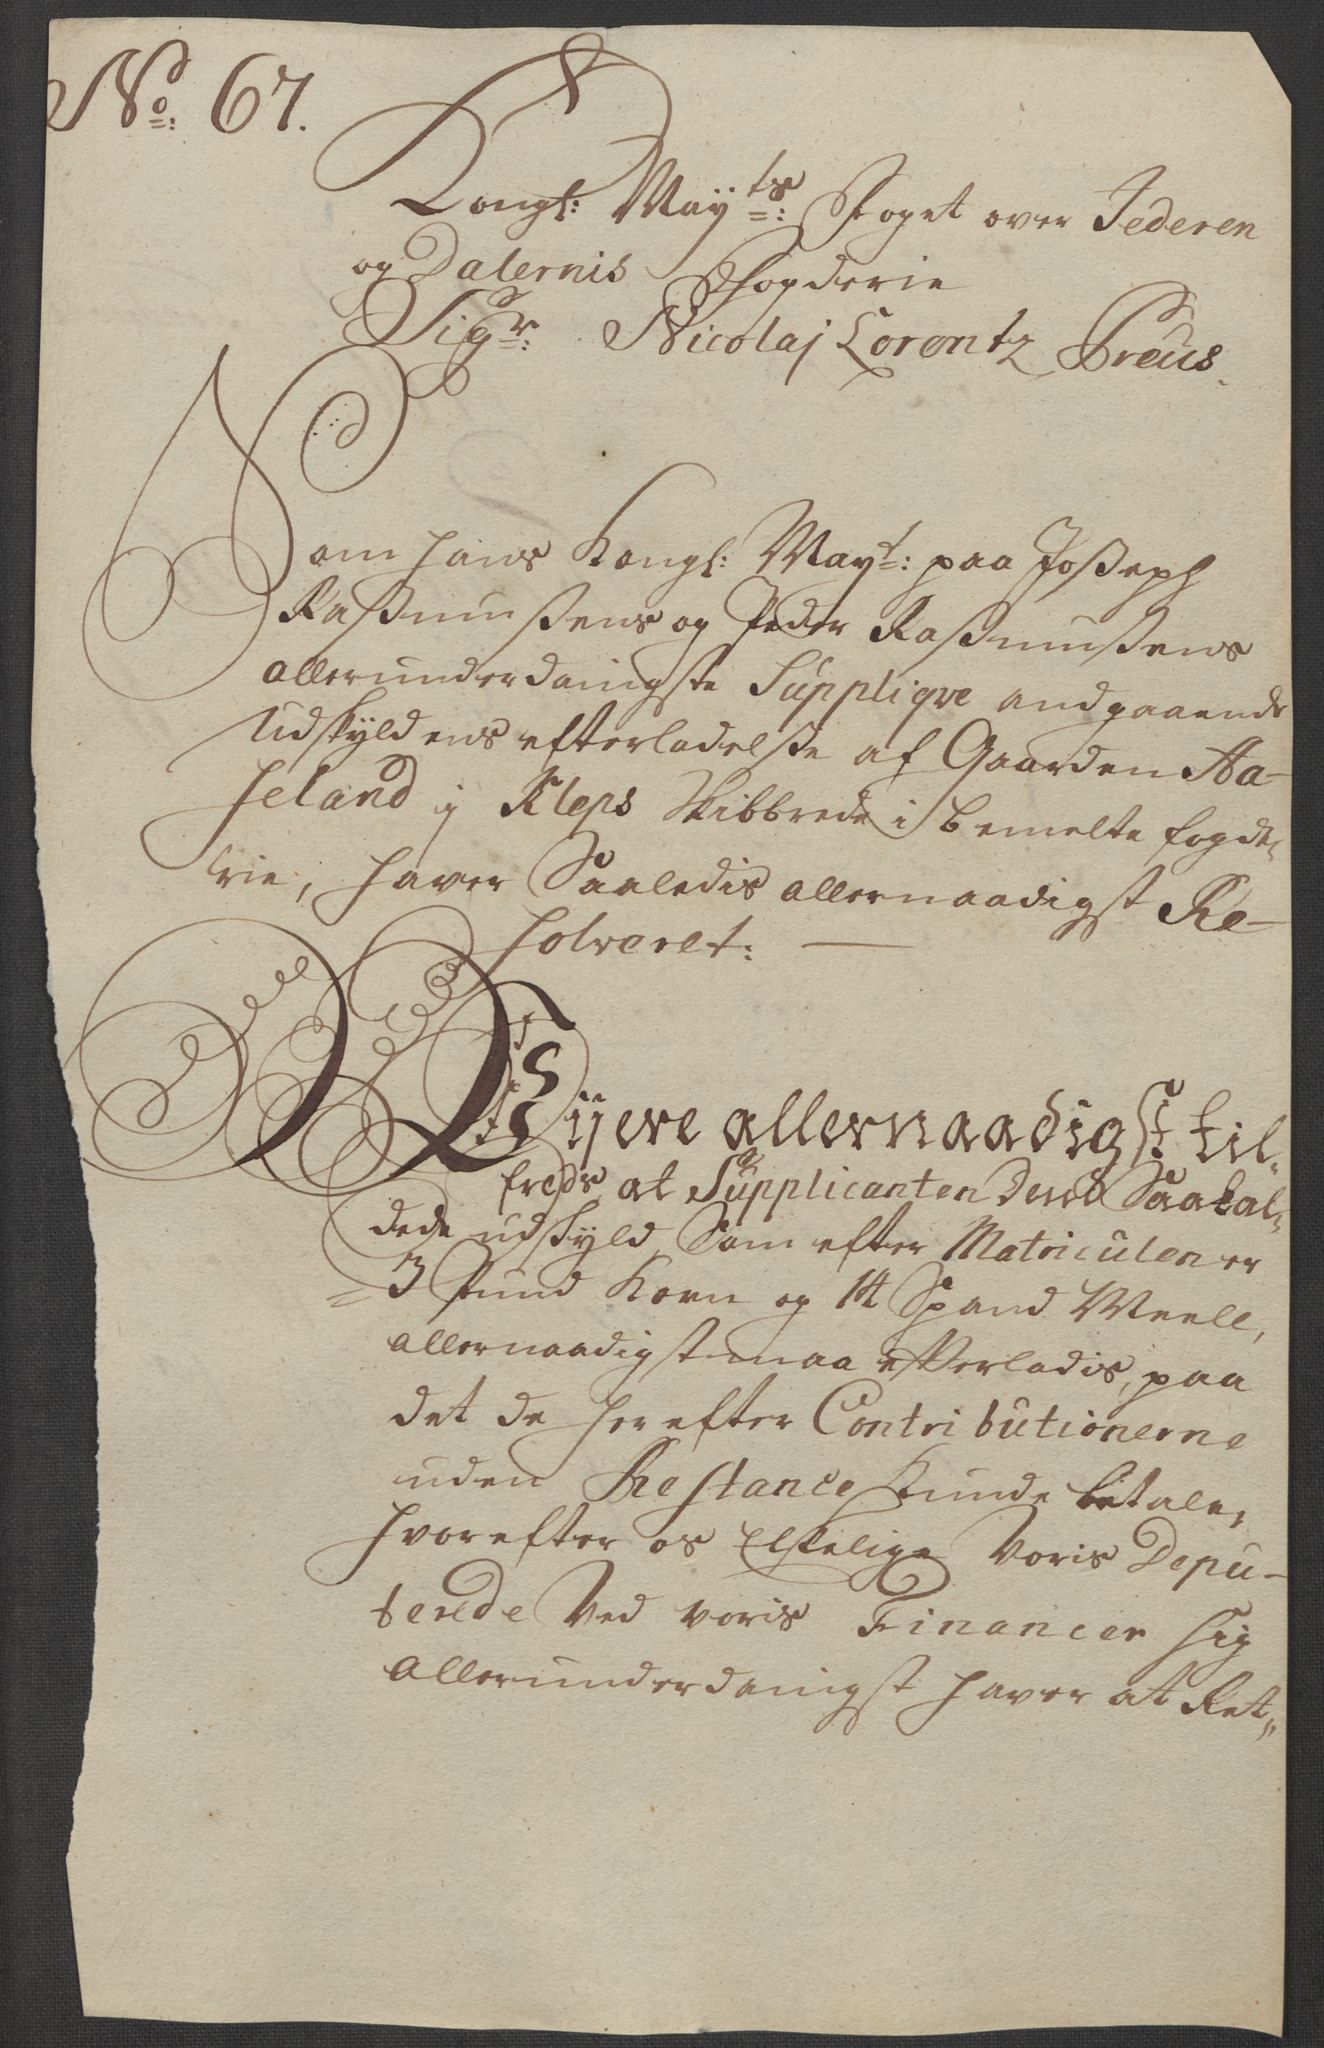 No: 67.
Kongl: Mayts: Foget over Jederen
og Dalernis Fogderie
Sigr: Nicolaj Lorentz Preus.
Som hans Kongl: Mayt: paa Joseph
Rasmusens og Peder Rasmusens
allerunderdanigste Supplique andgaaende
Udskyldens efterladelse af Gaarden Aa-
seland i Kleps Skibbrede i bemelte fogde,,
rie, haver Saaledis allernaadigst Re-
solveret:
Wii ere allernaadigst til,,
freds, at Supplicanten deres Saakal,,
dede udskyld, Som efter Matriculen er
3 Pund Korn og 1½ Spand Meell,
allernaadigst maa efterladis, paa
det de herefter Contributionerne
uden Restance kunde betale,
hvorefter os Elskelige Voris Depu-
terede Ved voris Financer sig
allerunderdanigst haver at Ret,,